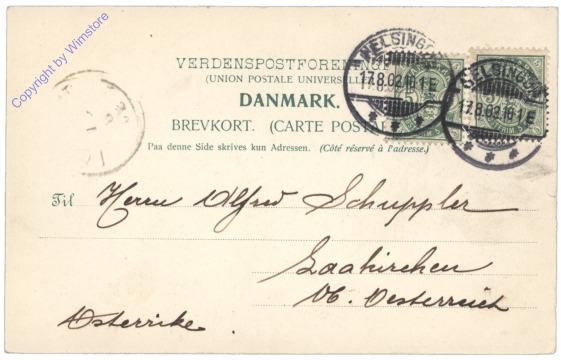 Copyright by Wimstore
VERDENSPOSTFORENINGEN
(UNION POSTALE UNIVERSELLE)
DANMARK.
BREVKORT. (CARTE POSTALE)
Paa denne Side skrives kun Adressen. (Côté réservé à l'adresse.)
HELSINGØR
17.8.03.10 1 E
HELSINGØR
17.8.03.10 1 E
Til Herrn Alfred Schuppler
Laakirchen
Ob. Oesterreich
Österrike